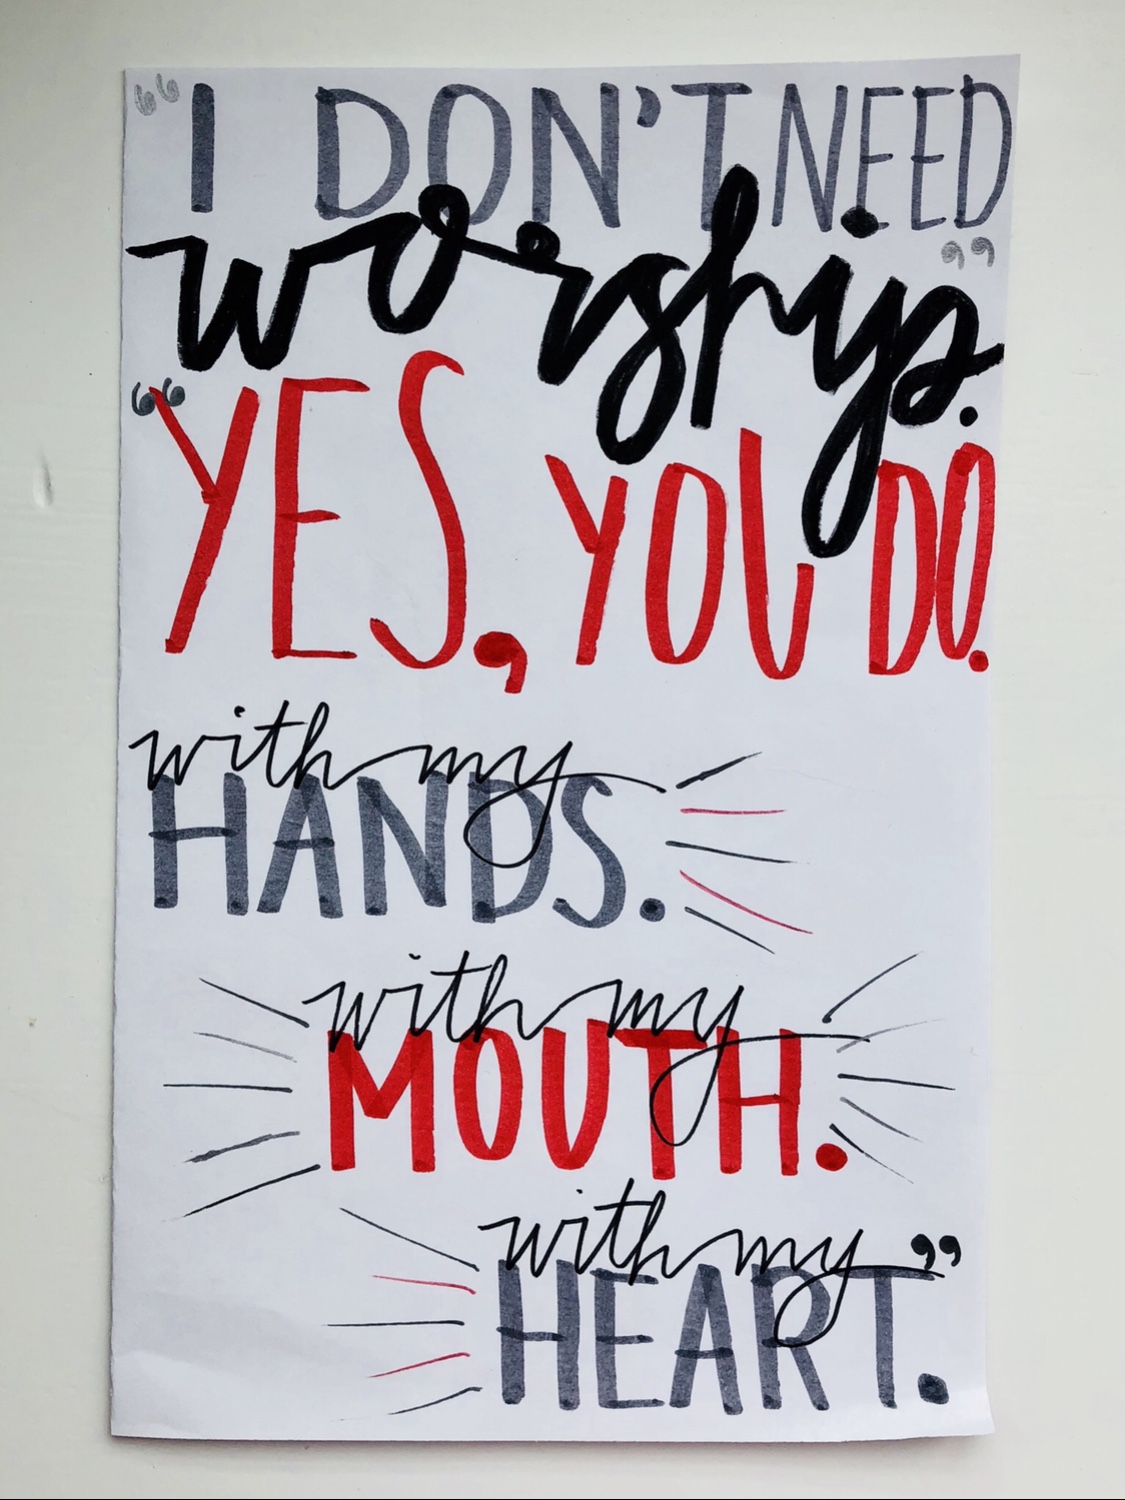 “I DON'T NEED
worship.”
“YES, YOU DO.
with my
HANDS.
with my
MOUTH.
with my”
HEART.